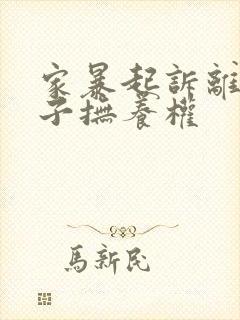 家暴起訴離
子撫養權
馬新民